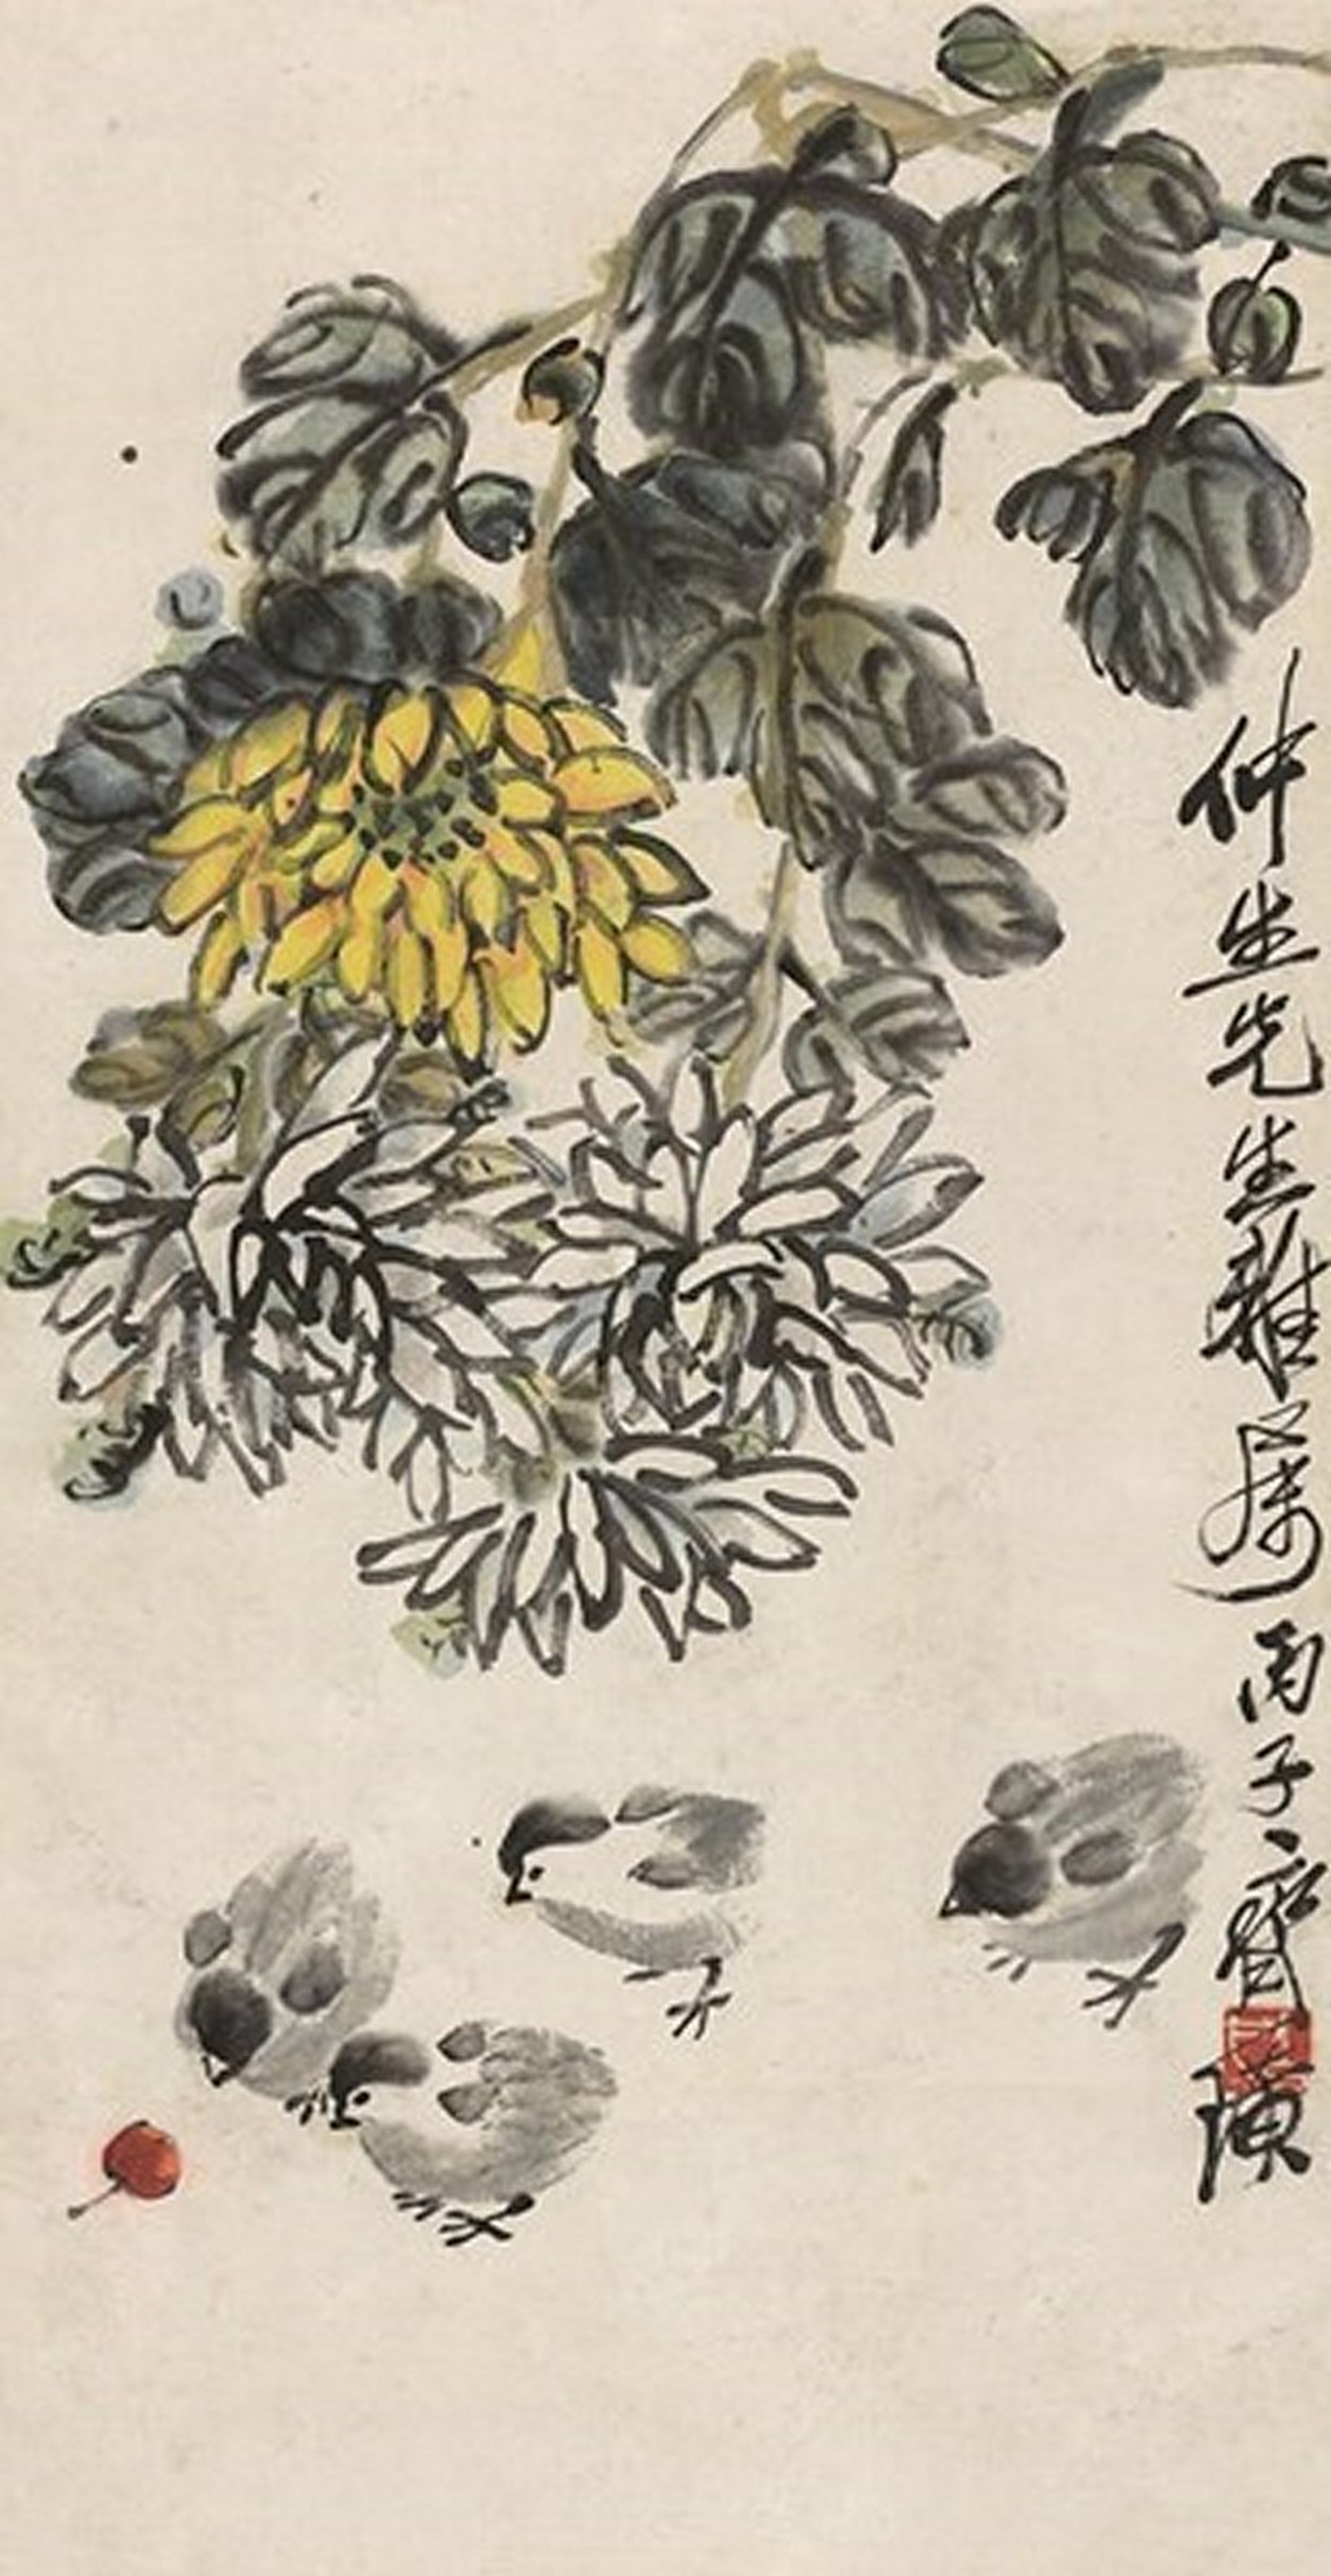 仲生先生雅属丙子齐璜